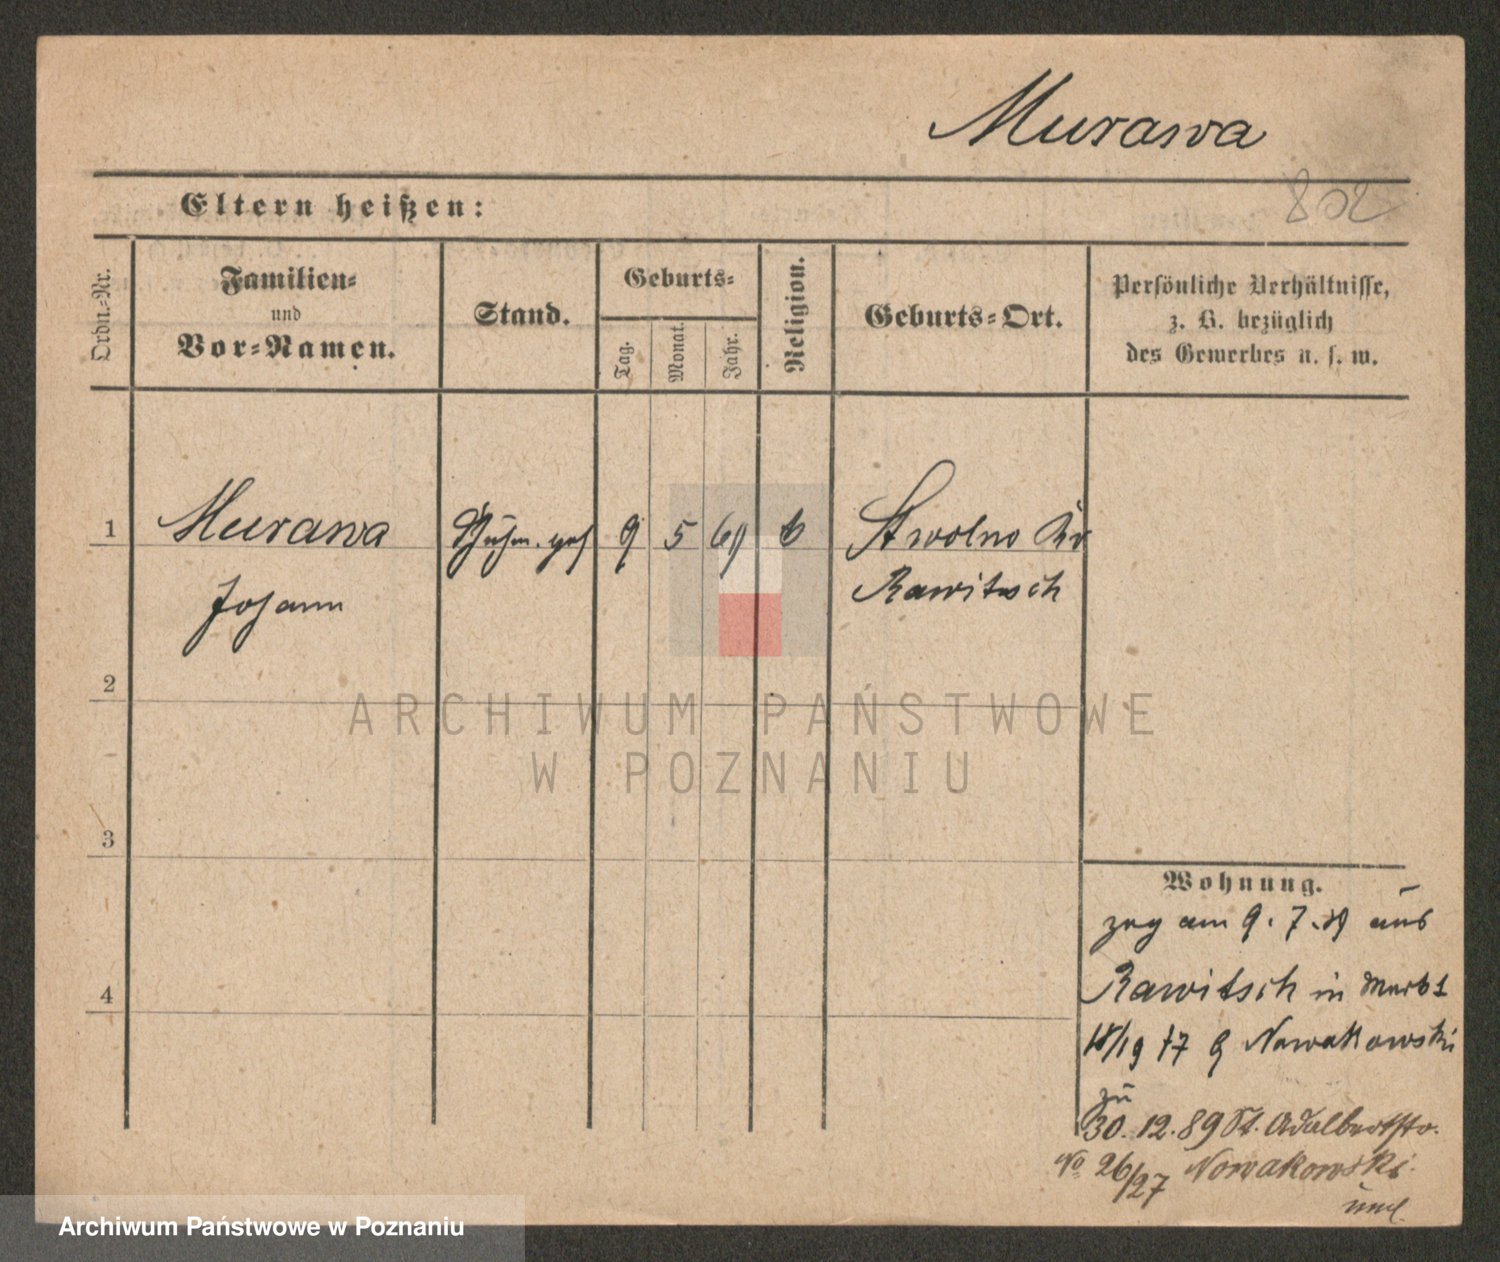 Murawa
802
Eltern heißen:
Ordn.-Nr.
Familien-
und
Vor-Namen.
Stand.
Geburts-
Tag.
Monat.
Jahr.
Religion.
Geburts-Ort.
Persönliche Verhältnisse,
z. B. bezüglich
des Gewerbes u. s. w.
1
Murawa
Johann
9
5
69
Stwolno Kr
Rawitsch
2
ARCHIWUM PAŃSTWOWE
W POZNANIU
3
4
Wohnung.
zug am 9. 7. 89 aus
Rawitsch in Markt
18/19 Nowakowski
zu
30. 12. 89 St. Adalbertstr.
No 26/27 Nowakowski
Archiwum Państwowe w Poznaniu